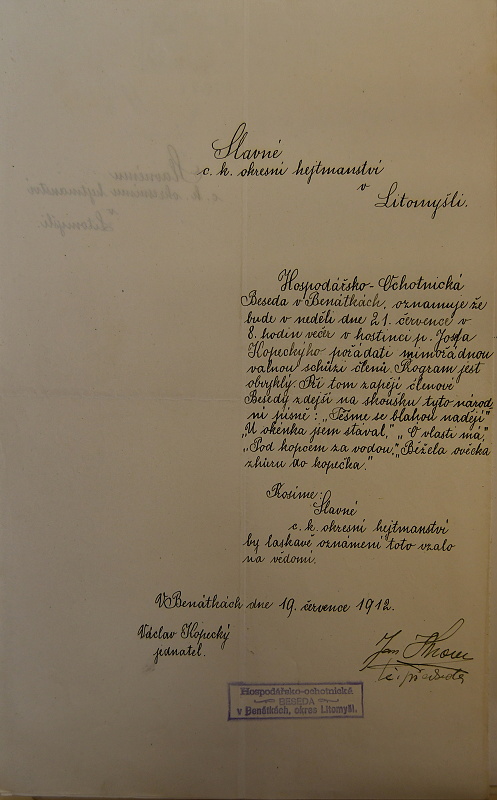 Slavné
c. k. okresní hejtmanství
v
Litomyšli.
Hospodářsko-Ochotnická
Beseda v Benátkách, oznamuje že
bude v neděli dne 21. července v
8. hodin večer v hostinci p. Josefa
Kopeckýho pořádati mimořádnou
valnou schůzi členů. Program jest
obvyklý. Při tom zapějí členové
Besedy zdejší na skoušku tyto národ
ní písně: „Těšme se blahou nadějí"
„U okénka jsem stával," „O vlasti má,"
„Pod kopcem za vodou," „Běžela ovečka
zhůru do kopečka."
Prosíme:
Slavné
c. k. okresní hejtmanství
by laskavě oznámení toto vzalo
na vědomí.
V Benátkách dne 19. července 1912.
Václav Kopecký
jednatel.
Jan
předseda
Hospodářsko-ochotnická
BESEDA
v Benátkách, okres Litomyšl.